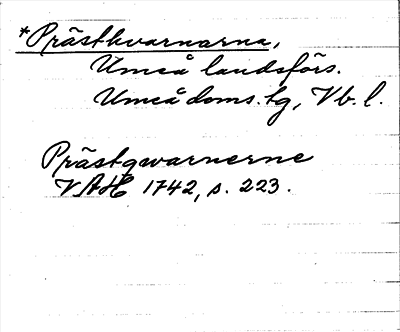 *Prästkvarnarna,
Umeå landsförs.
Umeå doms. tg, Vb. l.
Prästqwarnerne
VAH 1742, s. 223.